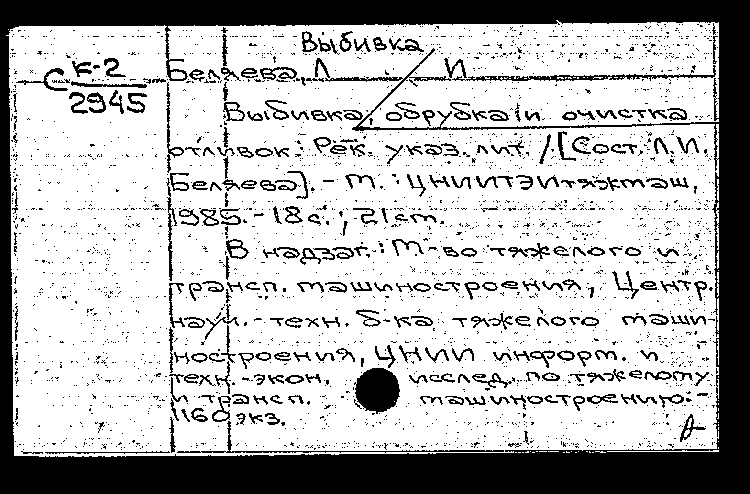 Выбивка
С к-2
2945
Беляева, Л И
Выбивка, обрубка и очистка
отливок: Рек. указ. лит. / [Сост. Л.И.
Беляева]. - М. : ЦНИИТЭИтяжмаш,
1985. - 18 с. ; 21 см.
В надзаг.: М-во тяжелого и
трансп. машиностроения, Центр.
науч.-техн. б-ка тяжелого маши-
ностроения, ЦНИИ информ. и
техн.-экон. исслед. по тяжелому
и трансп. машиностроению. -
1160 экз.